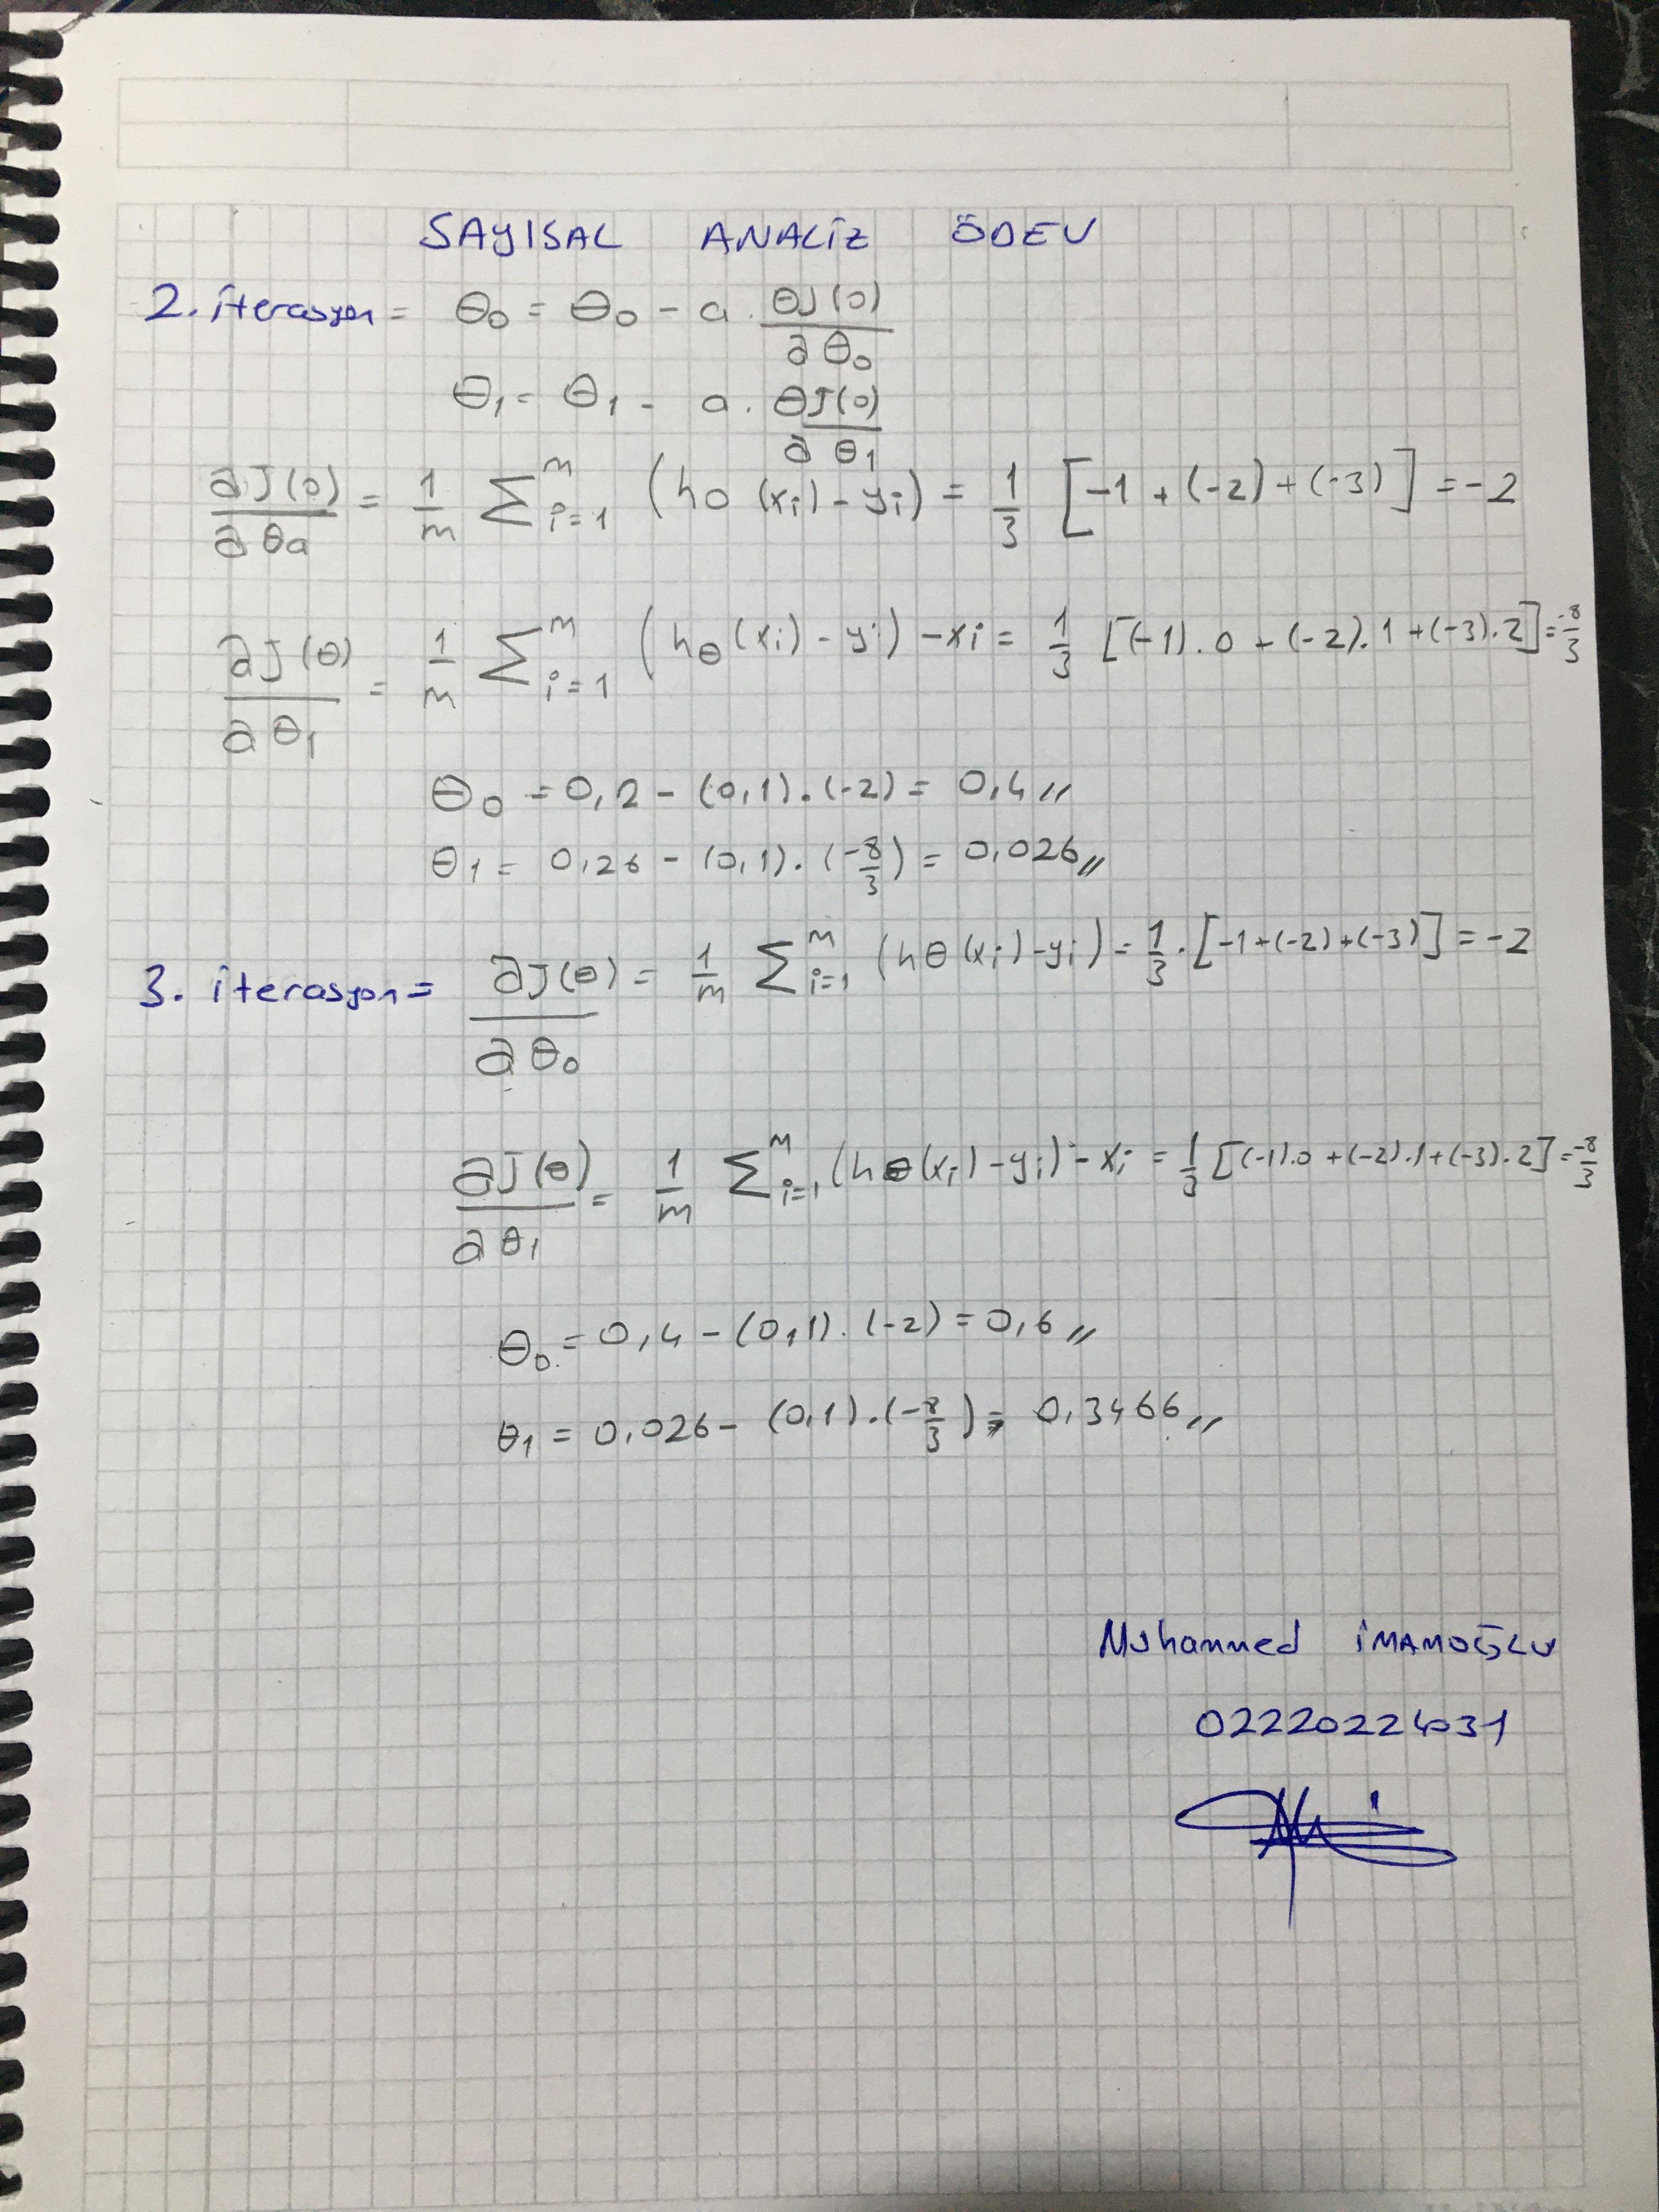 SAYISAL ANALİZ ÖDEV
2. iterasyon = θ₀ = θ₀ - a . θJ(0) / ∂θ₀
θ₁ = θ₁ - a . θJ(0) / ∂θ₁
∂J(0) / ∂θa = 1/m ∑ᵐᵢ₌₁ (h0 (xᵢ) - yᵢ) = 1/3 [-1 + (-2) + (-3)] = -2
∂J(θ) / ∂θ₁ = 1/m ∑ᵐᵢ₌₁ (hθ (xᵢ) - yᵢ) - xᵢ = 1/3 [(-1).0 + (-2).1 + (-3).2] = -8/3
θ₀ = 0,2 - (0,1).(-2) = 0,4 //
θ₁ = 0,26 - (0,1).(-8/3) = 0,026 //
3. iterasyon = ∂J(θ) / ∂θ₀ = 1/m ∑ᵐᵢ₌₁ (hθ(xᵢ) - yᵢ) = 1/3 . [-1 + (-2) + (-3)] = -2
∂J(θ) / ∂θ₁ = 1/m ∑ᵐᵢ₌₁ (hθ(xᵢ) - yᵢ) - xᵢ = 1/3 [(-1).0 + (-2).1 + (-3).2] = -8/3
θ₀ = 0,4 - (0,1).(-2) = 0,6 //
θ₁ = 0,026 - (0,1).(-8/3) = 0,3466 //
Muhammed İMAMOĞLU
02220224031